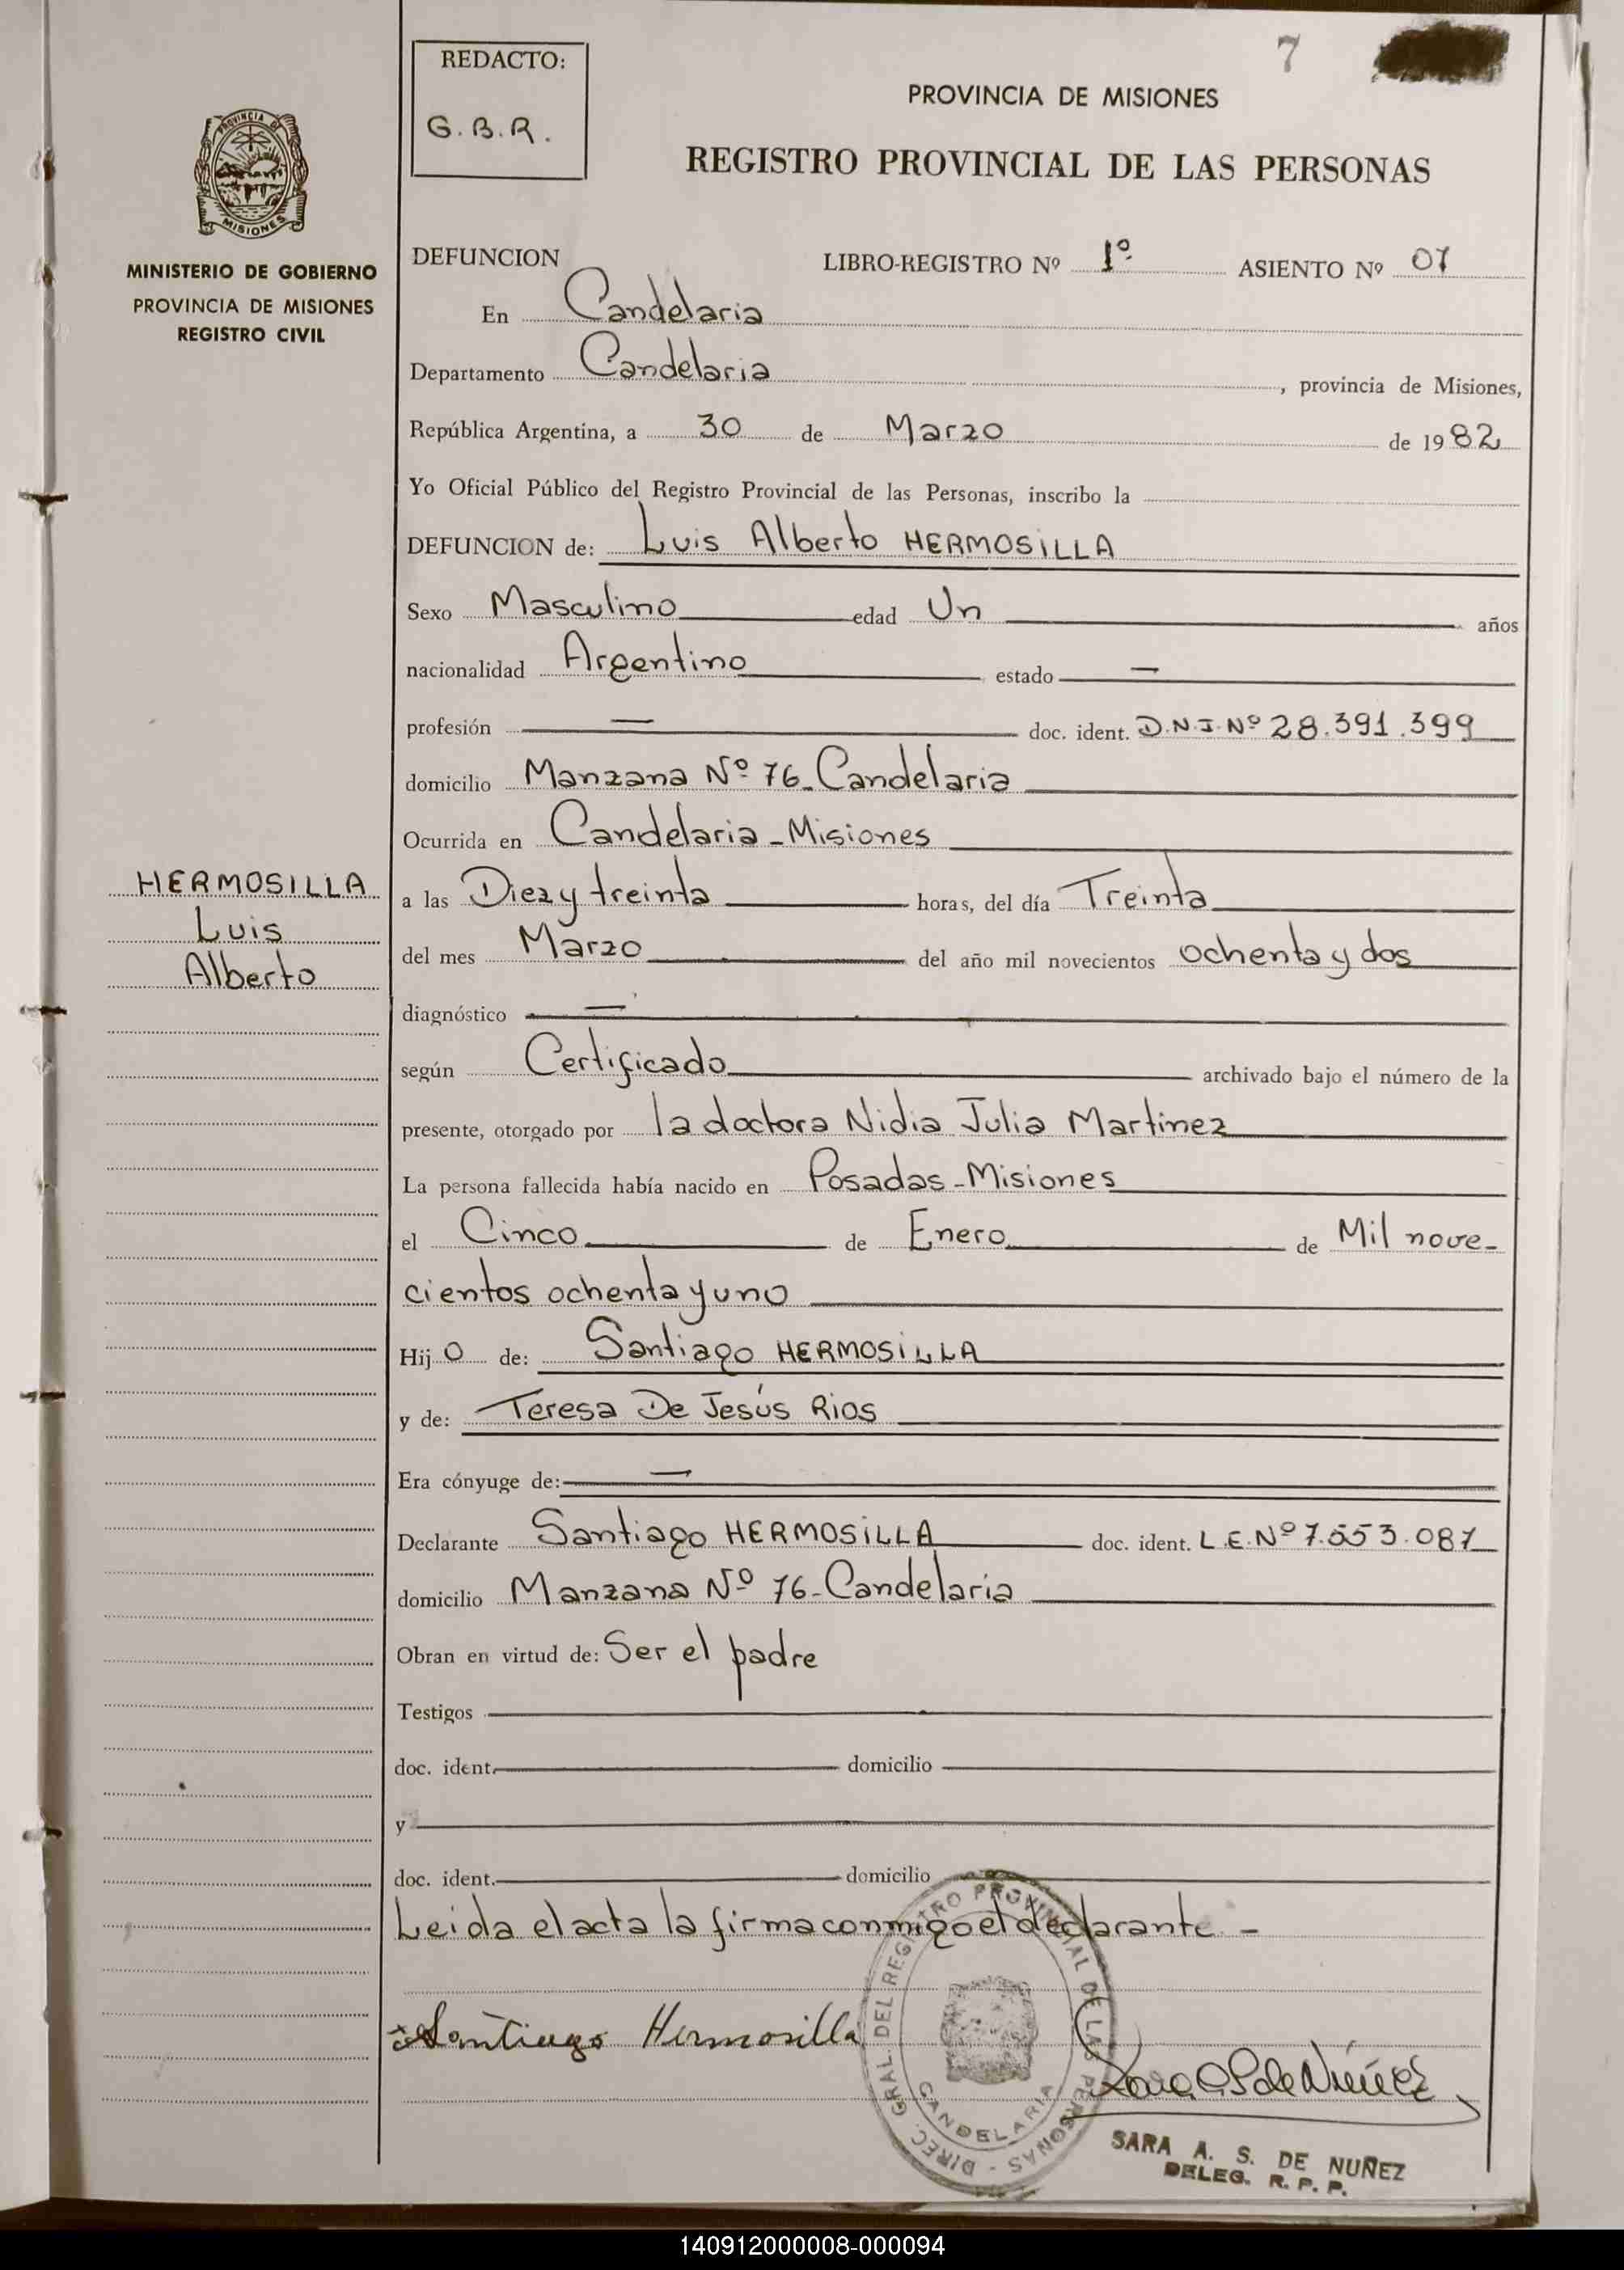 REDACTO:
G.B.R.
7
PROVINCIA DE MISIONES
REGISTRO PROVINCIAL DE LAS PERSONAS
PROVINCIA DE
MISIONES
MINISTERIO DE GOBIERNO
PROVINCIA DE MISIONES
REGISTRO CIVIL
DEFUNCION LIBRO-REGISTRO Nº 1º ASIENTO Nº 07
En Candelaria
Departamento Candelaria, provincia de Misiones,
República Argentina, a 30 de Marzo de 1982
Yo Oficial Público del Registro Provincial de las Personas, inscribo la
DEFUNCION de: Luis Alberto HERMOSILLA
Sexo Masculino edad Un años
nacionalidad Argentino estado —
profesión — doc. ident. D.N.I. Nº 28.391.399
domicilio Manzana Nº 76-Candelaria
Ocurrida en Candelaria-Misiones
HERMOSILLA
Luis
Alberto
a las Diez y treinta horas, del día Treinta
del mes Marzo del año mil novecientos ochenta y dos
diagnóstico —
según Certificado archivado bajo el número de la
presente, otorgado por la doctora Nidia Julia Martinez
La persona fallecida había nacido en Posadas-Misiones
el Cinco de Enero de Mil nove-
cientos ochenta y uno
Hijo de: Santiago HERMOSILLA
y de: Teresa De Jesús Rios
Era cónyuge de: —
Declarante Santiago HERMOSILLA doc. ident. L.E. Nº 7.553.087
domicilio Manzana Nº 76-Candelaria
Obran en virtud de: Ser el padre
Testigos
doc. ident. domicilio
y
doc. ident. domicilio
Leida el acta la firma conmigo el declarante -
Santiago Hermosilla
DIREC. GRAL. DEL REGISTRO PROVINCIAL DE LAS PERSONAS -
CANDELARIA
Sara A S de Núñez
SARA A. S. DE NUÑEZ
DELEG. R. P. P.
140912000008-000094